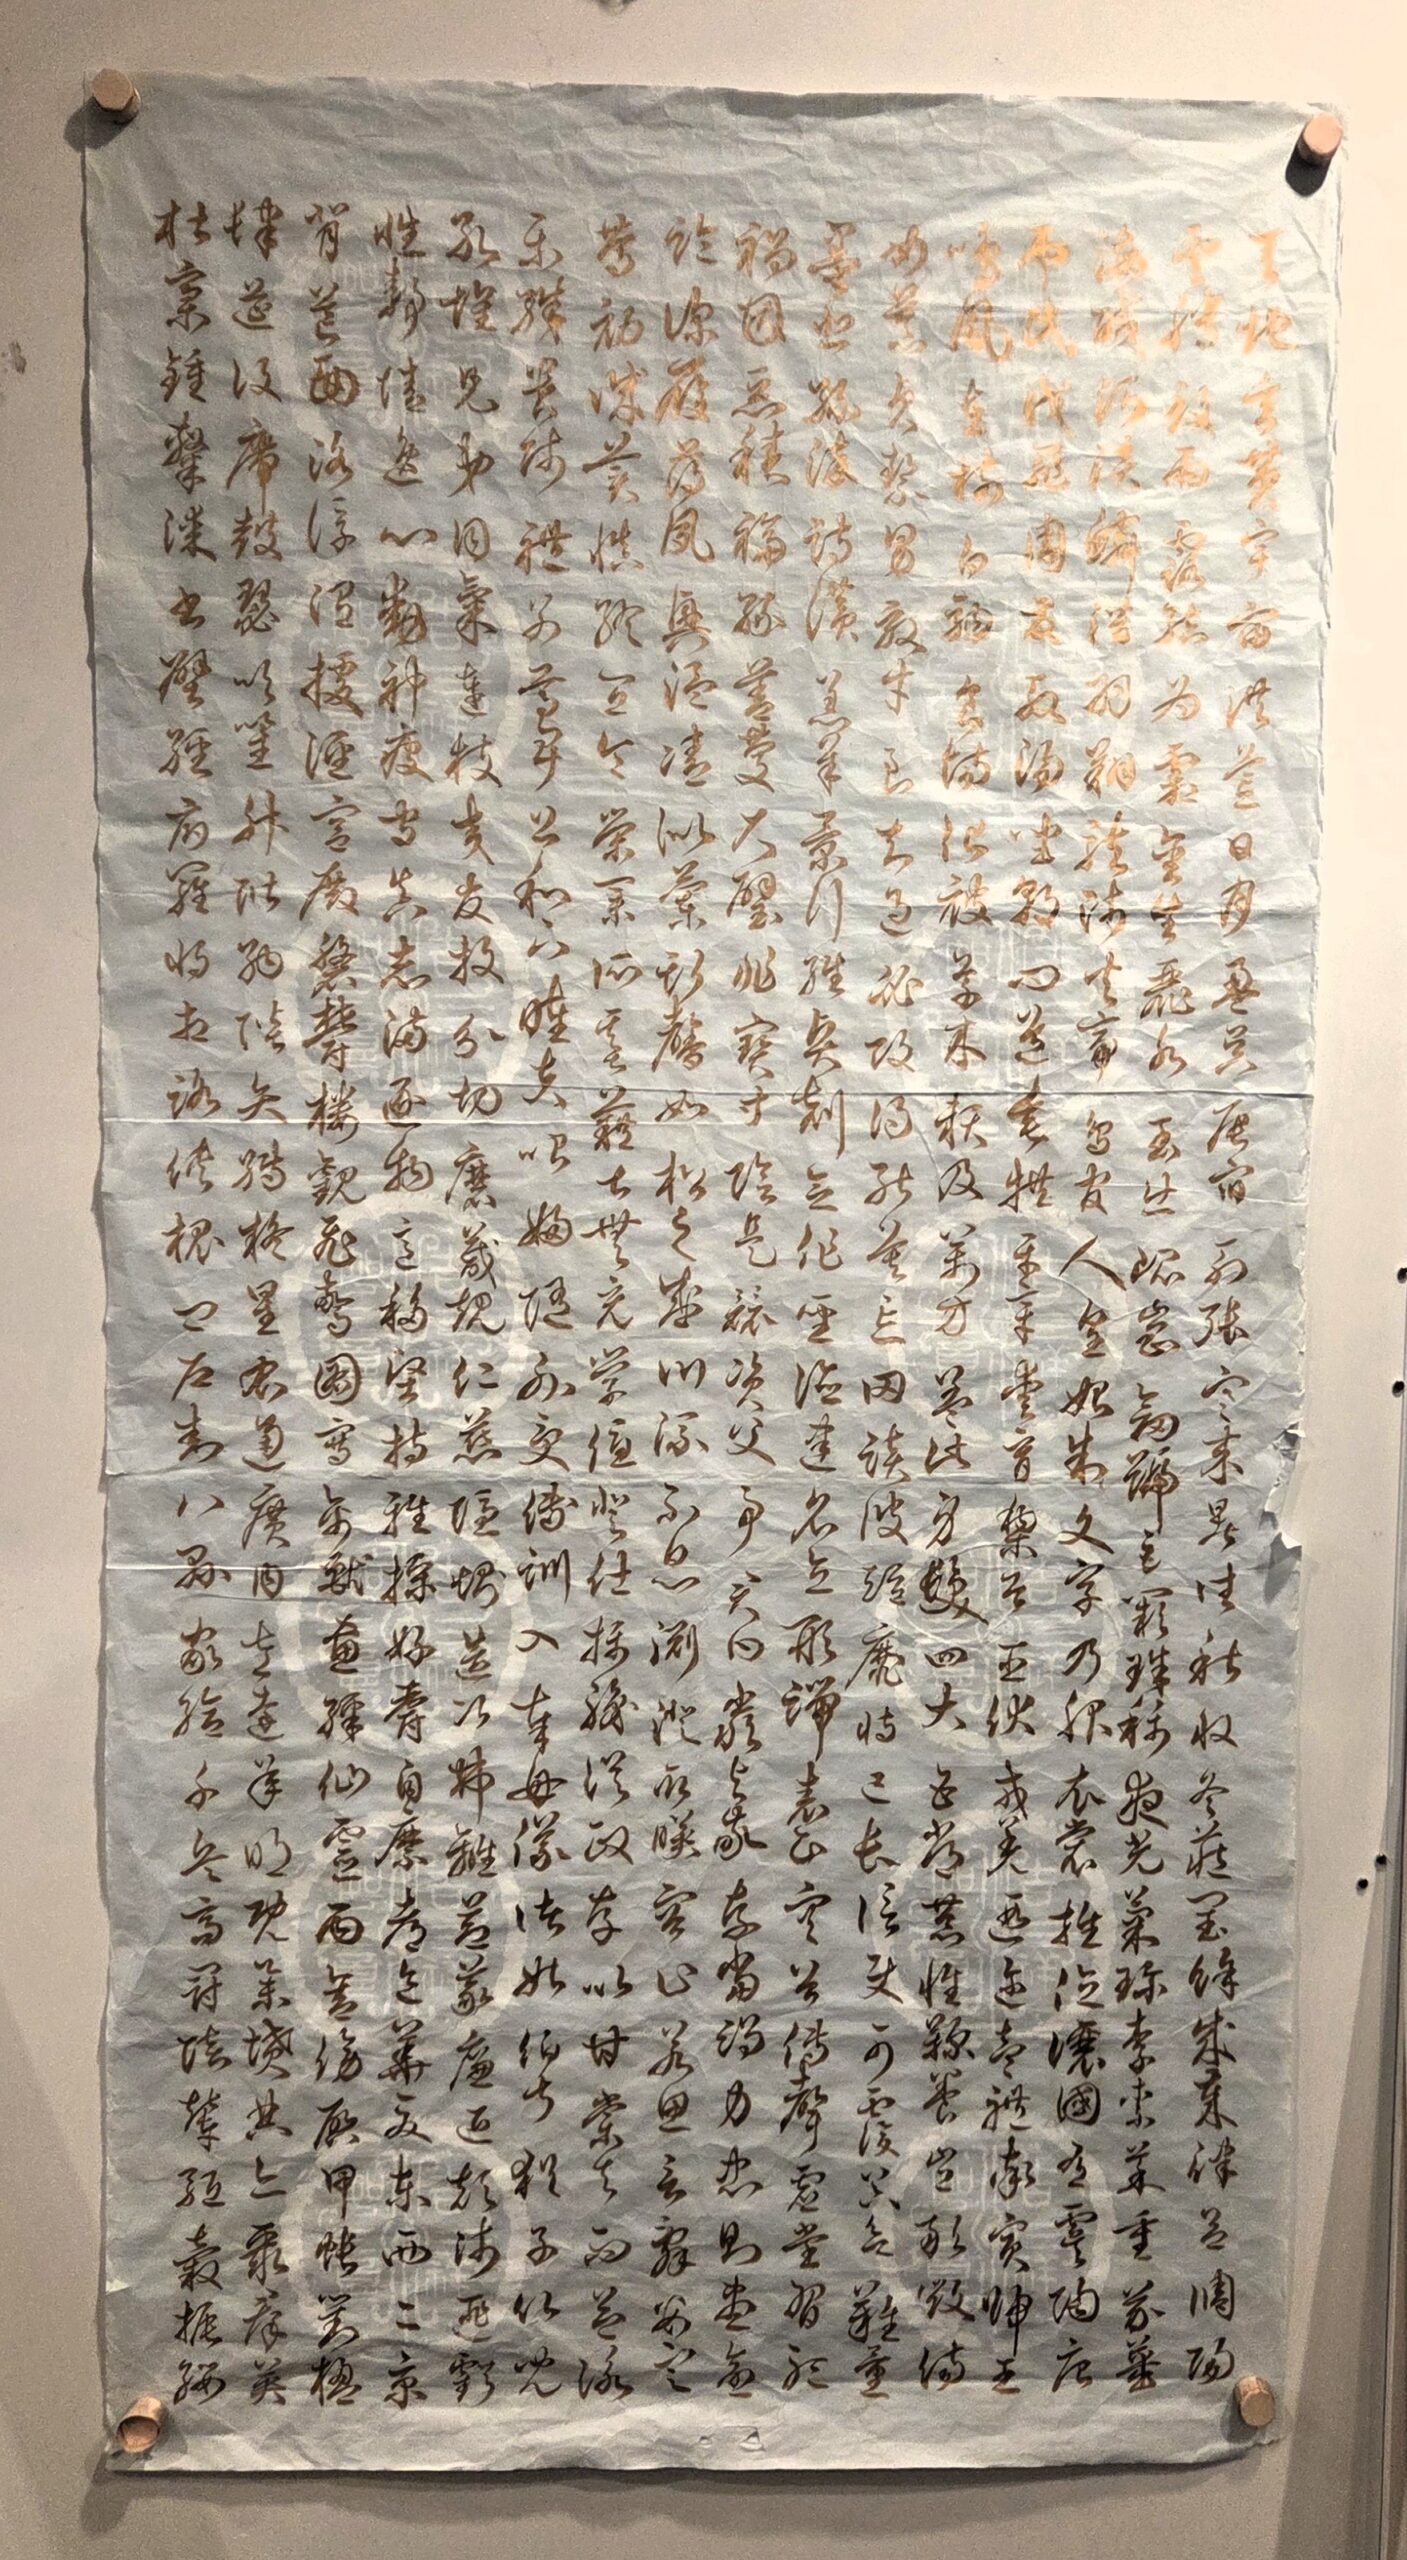 天地玄黃宇宙洪荒日月盈昃辰宿列張寒來暑往秋收冬藏閏餘成歲律呂調陽
雲騰致雨露結為霜金生麗水玉出崑崗劍號巨闕珠稱夜光菓珍李柰菜重芥薑
海鹹河淡鱗潛羽翔龍師火帝鳥官人皇始制文字乃服衣裳推位讓國有虞陶唐
弔民伐罪周發殷湯坐朝問道垂拱平章愛育黎首臣伏戎羌遐邇壹體率賓歸王
鳴鳳在樹白駒食場化被草木賴及萬方蓋此身髮四大五常恭惟鞠養豈敢毀傷
女慕貞潔男效才良知過必改得能莫忘罔談彼短靡恃己長信使可覆器欲難量
墨悲絲染詩讚羔羊景行維賢剋念作聖德建名立形端表正空谷傳聲虛堂習聽
禍因惡積福緣善慶尺璧非寶寸陰是競資父事君曰嚴與敬孝當竭力忠則盡命
臨深履薄夙興溫凊似蘭斯馨如松之盛川流不息淵澄取映容止若思言辭安定
篤初誠美慎終宜令榮業所基藉甚無竟學優登仕攝職從政存以甘棠去而益詠
樂殊貴賤禮別尊卑上和下睦夫唱婦隨外受傅訓入奉母儀諸姑伯叔猶子比兒
孔懷兄弟同氣連枝交友投分切磨箴規仁慈隱惻造次弗離節義廉退顛沛匪虧
性靜情逸心動神疲守真志滿逐物意移堅持雅操好爵自縻都邑華夏東西二京
背芒面洛浮渭據涇宮殿盤鬱樓觀飛驚圖寫禽獸畫綵仙靈丙舍傍啟甲帳對楹
肆筵設席鼓瑟吹笙升階納陛弁轉疑星右通廣內左達承明既集墳典亦聚群英
杜稾鍾隸漆書壁經府羅將相路俠槐卿戶封八縣家給千兵高冠陪輦驅轂振纓